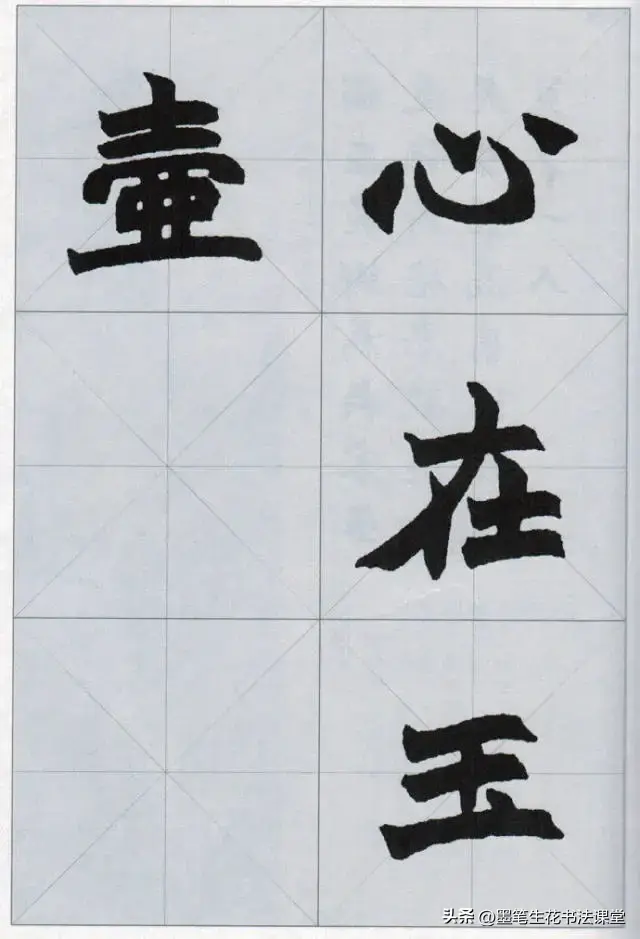 心在玉
壶
头条 @墨笔生花书法课堂